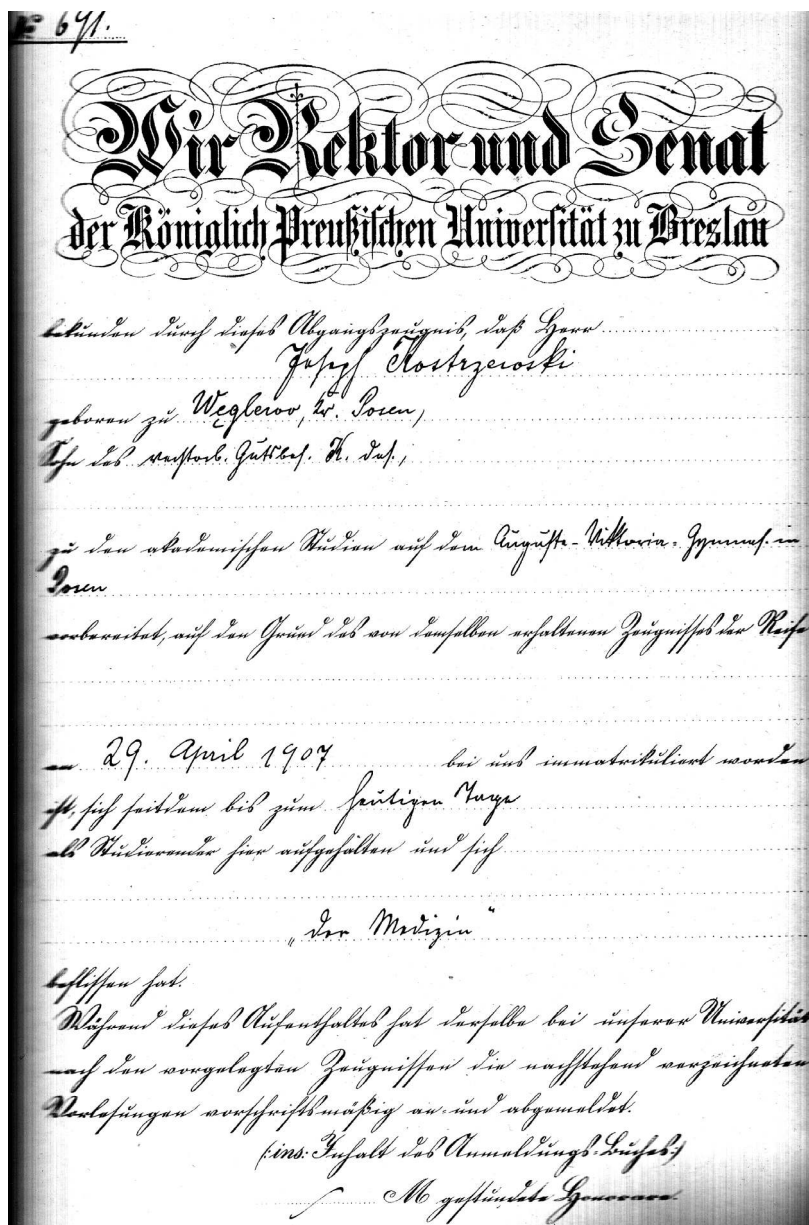 № 691.
Wir Rektor und Senat
der Königlich Preußischen Universität zu Breslau
bekunden durch dieses Abgangszeugnis, daß Herr
Joseph Kostrzewski
geboren zu Węglewo, Kr. Posen,
Sohn des verstorb. Gutsbes. K. das.,
zu den akademischen Studien auf dem Auguste-Viktoria-Gymnas. in
Posen
vorbereitet, auf den Grund des von demselben erhaltenen Zeugnisses der Reife
am 29. April 1907 bei uns immatrikuliert worden
ist, sich seitdem bis zum heutigen Tage
als Studierender hier aufgehalten und sich
„der Medizin"
beflissen hat.
Während dieses Aufenthaltes hat derselbe bei unserer Universität
nach den vorgelegten Zeugnissen die nachstehend verzeichneten
Vorlesungen vorschriftsmäßig an- und abgemeldet.
(:ins: Inhalt des Anmeldungs-Buches:)
M gestundete Honorare.